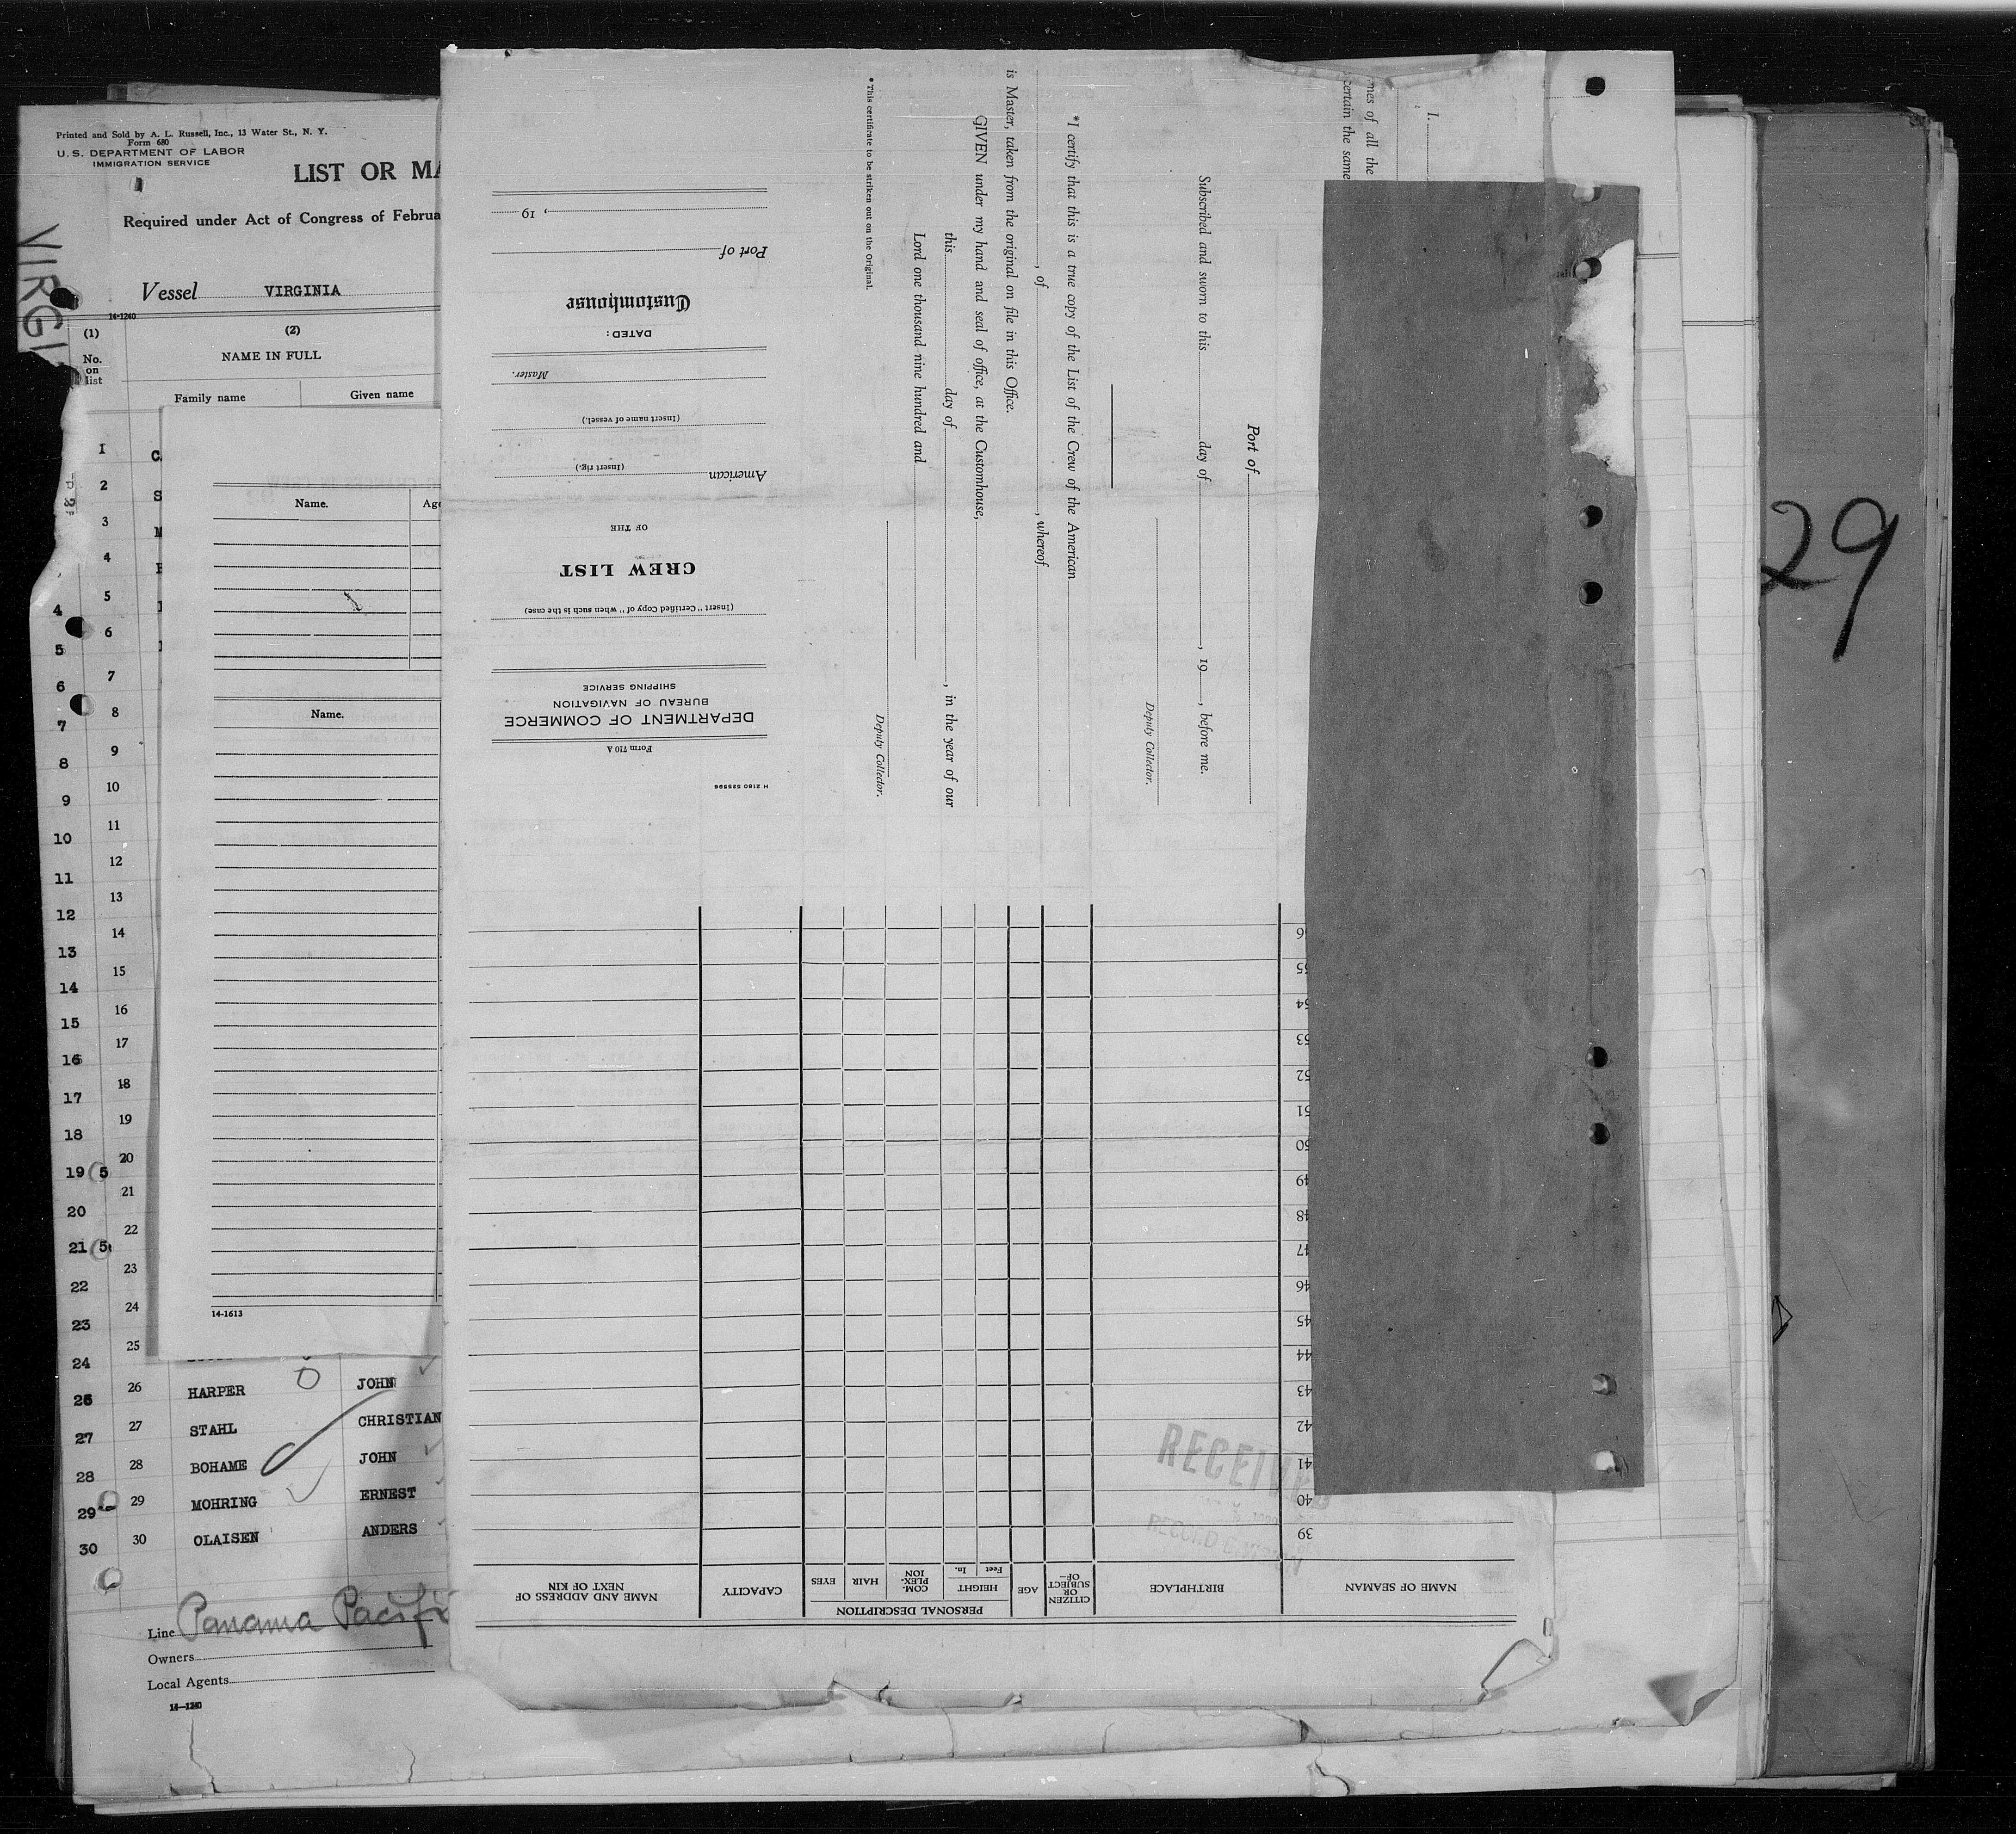 Printed and Sold by A. L. Russell, Inc., 13 Water St., N. Y.
Form 680
U. S. DEPARTMENT OF LABOR
IMMIGRATION SERVICE
LIST OR MA
Required under Act of Congress of Februa
VIRGI
Vessel VIRGINIA
14-1240
(1) (2)
No. on list
NAME IN FULL
Family name Given name
1
2
3
4
5
6
7
8
9
10
11
12
13
14
15
16
17
18
19
20
21
22
23
24
25
4
5
6
7
8
9
10
11
12
13
14
15
16
17
18
19 5
20
21 5
22
23
24
26
27
28
29
30
Name. Age
Name.
14-1613
26 HARPER JOHN
27 STAHL CHRISTIAN
28 BOHAME JOHN
29 MOHRING ERNEST
30 OLAISEN ANDERS
Line Panama Pacific
Owners
Local Agents
14-1240
H 2180 525596
Form 710 A
DEPARTMENT OF COMMERCE
BUREAU OF NAVIGATION
SHIPPING SERVICE
(Insert "Certified Copy of" when such is the case)
CREW LIST
OF THE
American
(Insert rig.)
(Insert name of vessel.)
Master.
DATED:
Customhouse
Port of
, 19
I.
mes of all the
certain the same
Port of
Subscribed and sworn to this day of , 19 , before me.
Deputy Collector.
*I certify that this is a true copy of the List of the Crew of the American
, of , whereof
is Master, taken from the original on file in this Office.
GIVEN under my hand and seal of office, at the Customhouse,
this day of , in the year of our
Lord one thousand nine hundred and
Deputy Collector.
*This certificate to be striken out on the Original.
NAME OF SEAMAN
BIRTHPLACE
CITIZEN OR SUBJECT OF—
AGE
PERSONAL DESCRIPTION
HEIGHT
Feet In.
COMPLEXION
HAIR
EYES
CAPACITY
NAME AND ADDRESS OF NEXT OF KIN
39
40
41
42
43
44
45
46
47
48
49
50
51
52
53
54
55
RECEIVED
29